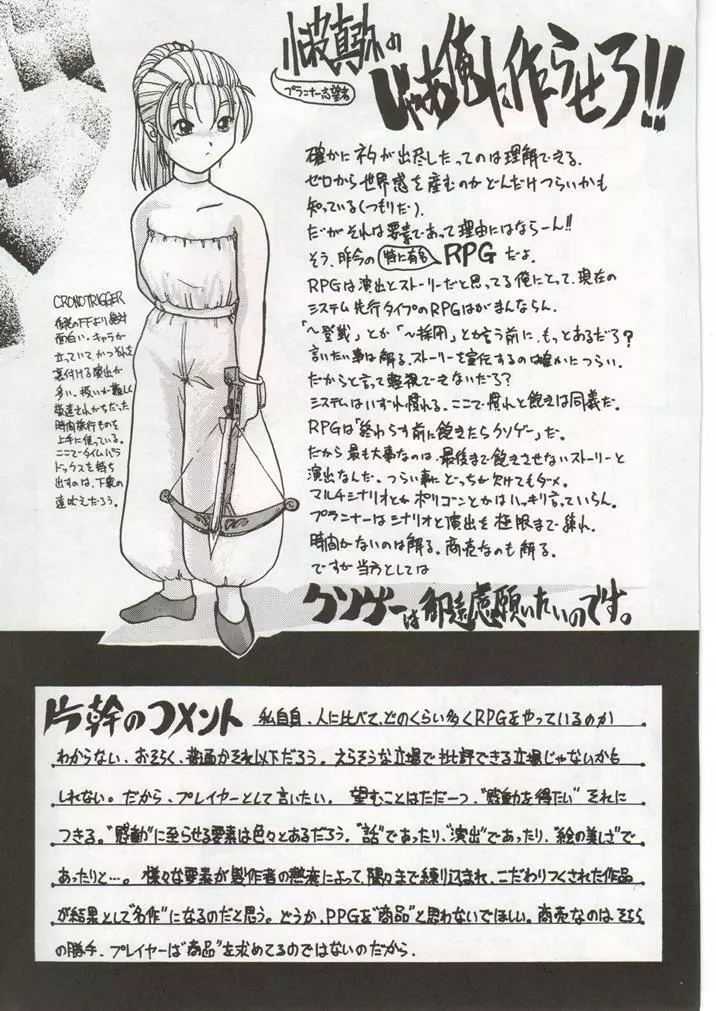 真弥の
プランナー志望者
じゃあ俺に作らせろ!!
確かにネタが出尽したってのは理解できる。
ゼロから世界感を産むのがどんだけつらいかも
知っている(つもりだ)。
だがそれは要素であって理由にはならーん!!
そう、昨今の(特に有名)RPGだよ。
RPGは演出とストーリーだと思ってる俺にとって、現在の
システム先行タイプのRPGはがまんならん。
「〜登載」とか「〜採用」とか言う前に、もっとあるだろ?
言いたい事は解る。ストーリーを宣伝するのは確かにつらい。
だからと言って軽視できないだろ?
システムはいずれ慣れる。ここで慣れと飽きは同義だ。
RPGは「終わらす前に飽きたらクソゲー」だ。
だから最も大事なのは、最後まで飽きさせないストーリーと
演出なんだ。つらい事にどっちが欠けてもダメ。
マルチシナリオとかポリゴンとかはハッキリ言っていらん。
プランナーはシナリオと演出を極限まで練れ。
時間がないのは解る。商売なのも解る。
ですが当方としては
クソゲーは御遠慮願いたいのです。
CRONOTRIGGER
FFより絶対
面白い。キャラが
立っていて、かつそれを
裏付ける演出が
多い。扱いが難しく
敬遠されがちだった
時間旅行ものを
上手に使っている。
ここでタイムパラ
ドックスを持ち
出すのは、下衆の
遠吠えだろう。
片幹のコメント 私自身、人に比べて、どのくらい多くRPGをやっているのか
わからない、おそらく、普通かそれ以下だろう。えらそうな立場で批評できる立場じゃないかも
しれない。だから、プレイヤーとして言いたい。望むことはただ一つ、"感動を得たい"それに
つきる。"感動"に至らせる要素は色々とあるだろう、"話"であったり、"演出"であったり、"絵の美しさ"で
あったりと…。様々な要素が製作者の熱意によって、隅々まで練り込まれ、こだわりつくされた作品
が結果として"名作"になるのだと思う。どうか、PPGを"商品"と思わないでほしい。商売なのはそちら
の勝手、プレイヤーは"商品"を求めてるのではないのだから.